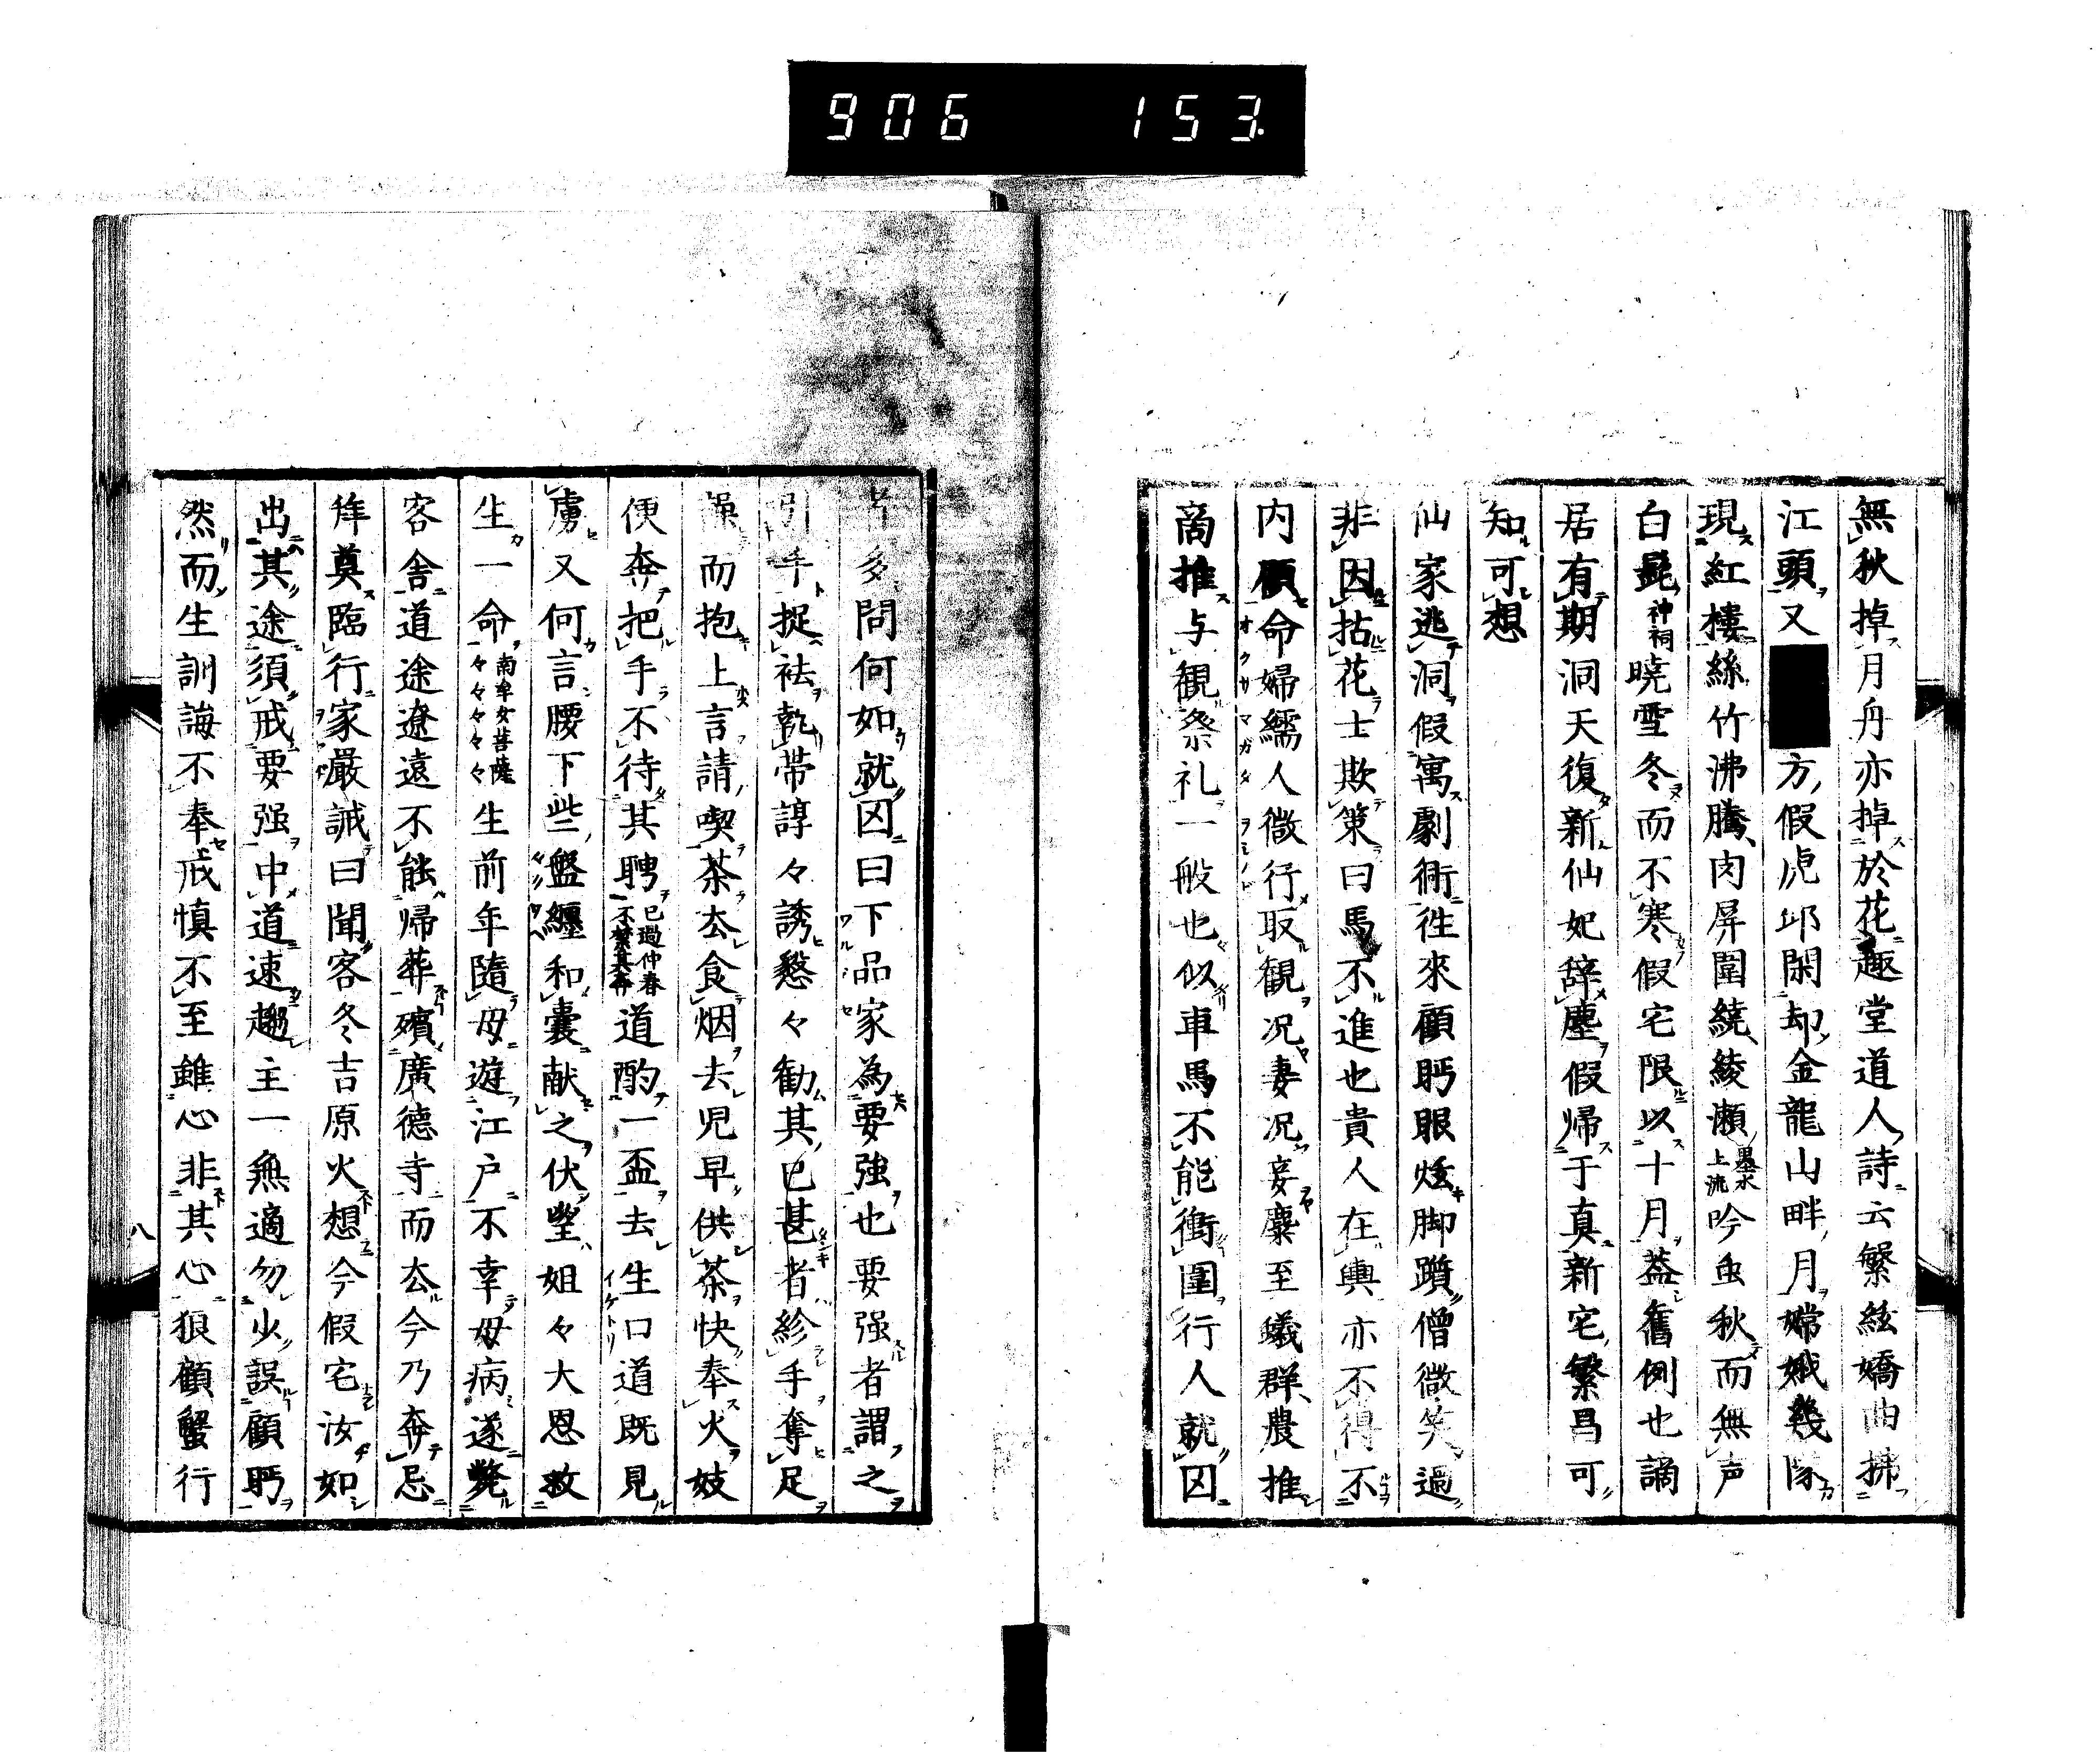 906 153
無秋掉月舟亦掉於花趣堂道人詩云繁絃嬌曲拂
江頭又方假虎邱閑却金龍山畔月嫦娥幾隊
現紅樓絲竹沸騰肉屏圍繞綾瀬墨水上流吟虫秋而無声
白髭神祠暁雪冬而不寒假宅限以十月葢舊例也謫
居有期洞天復新仙妃辞塵假帰于真新宅繁昌可
知可想
仙家逃洞假寓劇術往來顧眄眼炫脚躓僧微笑過
非因拈花士欺策曰馬不進也貴人在輿亦不得不
内顧命婦繻人微行取観况妻况妾麋至蟻群農推
商推与観祭礼一般也似車馬不能衝圍行人就囚
多問何如就囚曰下品家為要強也要强者謂之
引手捉袪乾帯諄々誘懇々勧其已甚者紾手奪足
而抱上言請喫茶厺食烟去児早供茶快奉火妓
便奔把手不待其聘已過仲春不禁其奔道酌一盃去生口道既見
虜又何言腰下些盤纏和嚢献之伏望姐々大恩救
生一命南牟女菩薩々々々々々生前年隨母遊江户不幸母病遂斃
客舎道途遼遠不能帰葬殯廣德寺而厺今乃奔忌
奠臨行家厳誡曰聞客冬吉原火想今假宅汝如
出其途須戒要强中道速趨主一無適勿少誤顧眄
然而生訓誨不奉戒慎不至雖心非其心狼顧蟹行
八